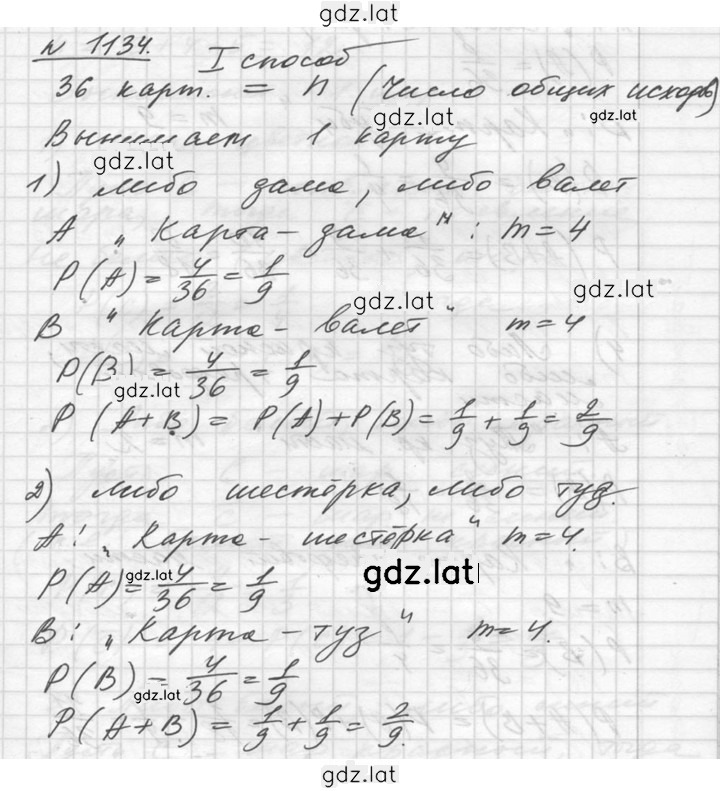 gdz.lat
№ 1134.
I способ
36 карт. = n (число общих исходов)
gdz.lat
gdz.lat
Вынимает 1 карту
gdz.lat
1) либо дама, либо валет
A „Карта - дама": m = 4
P(A) = 4/36 = 1/9
gdz.lat
gdz.lat
B "Карта - валет" m = 4
P(B) = 4/36 = 1/9
gdz.lat
P (A+B) = P(A) + P(B) = 1/9 + 1/9 = 2/9
2) либо шестёрка, либо туз.
A: „Карта - шестёрка" m = 4.
P(A) = 4/36 = 1/9
gdz.lat
gdz.lat
B: „Карта - туз" m = 4.
P(B) = 4/36 = 1/9
gdz.lat
P(A+B) = 1/9 + 1/9 = 2/9.
gdz.lat